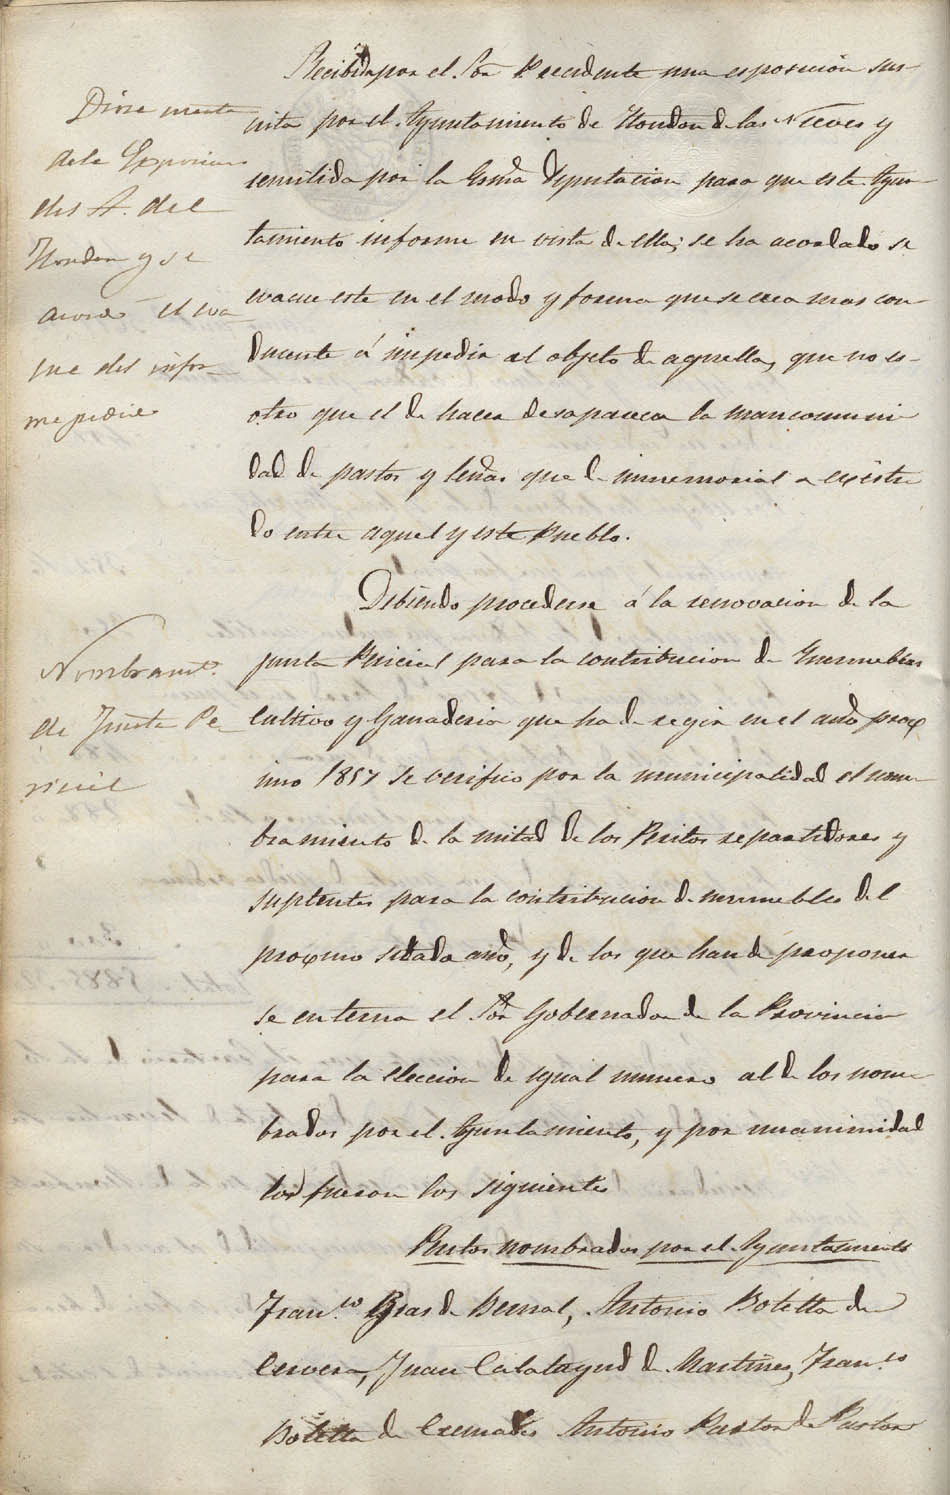 Dióse cuenta
de la Esposicion
del A. del
Hondon y se
acordó el eva-
cue del infor-
me pedido
Recibida por el Sor Precidente una esposicion sus-
crita por el Ayuntamiento de Hondon de las Nieves y
remitida por la Exma Diputacion para que este Ayun-
tamiento informe en vista de ella; se ha acordado se
evacue este en el modo y forma que se crea mas con-
ducente á impedir el objeto de aquella, que no es
otro que el de hacer desaparecer la mancomuni
dad de pastos y leñas que de inmemorial a existi
do entre aquel y este Pueblo.
Nombramto.
de Junta Pe-
ricial
Debiendo procederse á la renovacion de la
junta Pericial para la contribucion de Inmuebles
Cultivo y Ganaderia que ha de regir en el año procs
imo 1857 se verifico por la municipalidad el nom-
bramiento de la mitad de los Peritos repartidores y
suplentes para la contribucion de inmuebles del
procsimo citado año, y de los que han de proponer
se en terna el Sor Gobernador de la Provincia
para la eleccion de igual numero al de los nom-
brados por el Ayuntamiento, y por unanimidad
lo fueron los siguientes
Peritos nombrados por el Ayuntamiento
Franco. de Bernal, Antonio Botella de
Cervera, Juan Calatayud de Martines, Franco
Botella de Cremades Antonio Pastor de Pastor